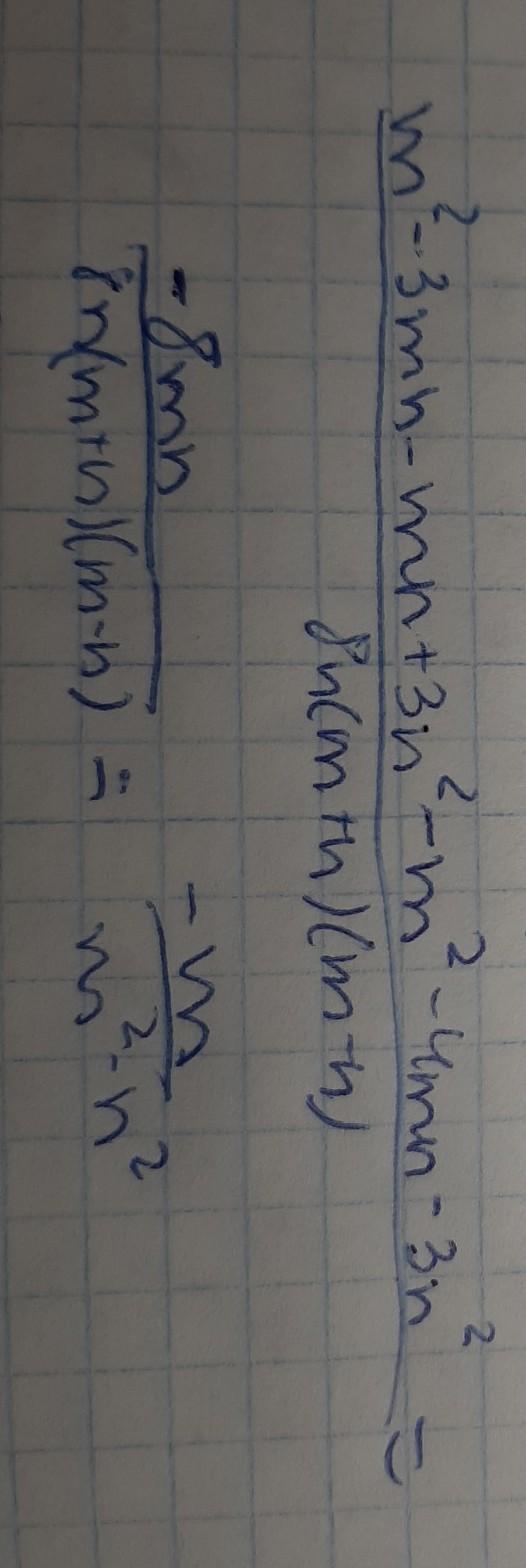 m² - 3mn - mn + 3n² - m² - 4mn - 3n² =
8n(m+n)(m-n)
-8mn
8n(m+n)(m-n) = -m
m² - n²